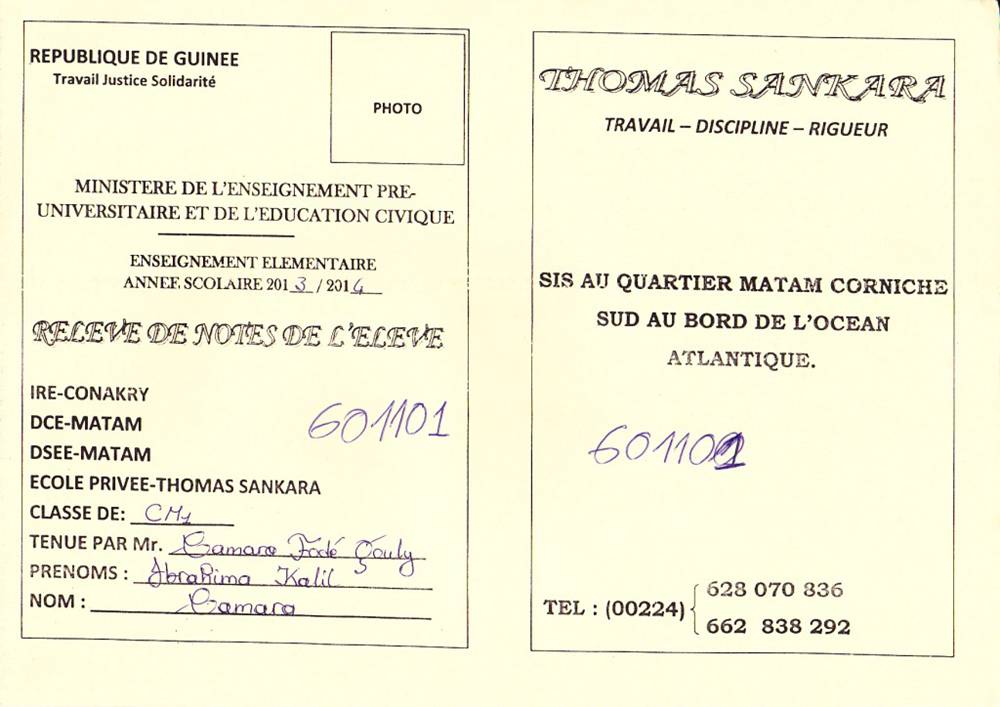 REPUBLIQUE DE GUINEE
Travail Justice Solidarité
PHOTO
MINISTERE DE L'ENSEIGNEMENT PRE-
UNIVERSITAIRE ET DE L'EDUCATION CIVIQUE
ENSEIGNEMENT ELEMENTAIRE
ANNEE SCOLAIRE 2013 / 2014
RELEVE DE NOTES DE L'ELEVE
IRE-CONAKRY
DCE-MATAM
601101
DSEE-MATAM
ECOLE PRIVEE-THOMAS SANKARA
CLASSE DE: CM1
TENUE PAR Mr. Camara Fodé
PRENOMS : Ibrahima Kalil
NOM : Camara
THOMAS SANKARA
TRAVAIL – DISCIPLINE – RIGUEUR
SIS AU QUARTIER MATAM CORNICHE
SUD AU BORD DE L'OCEAN
ATLANTIQUE.
601101
TEL : (00224)
628 070 836
662 838 292